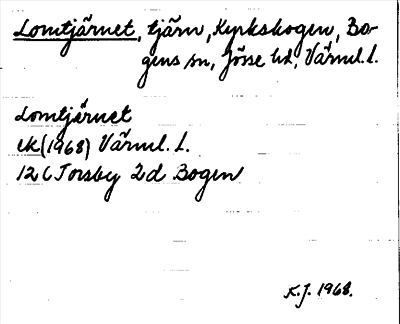 Lomtjärnet, tjärn, Kyrkskogen, Bo-
gens sn, Jösse hd, Värml. l.
Lomtjärnet
ek (1968) Värml. l.
12 C Torsby 2d Bogen
K.J. 1968.